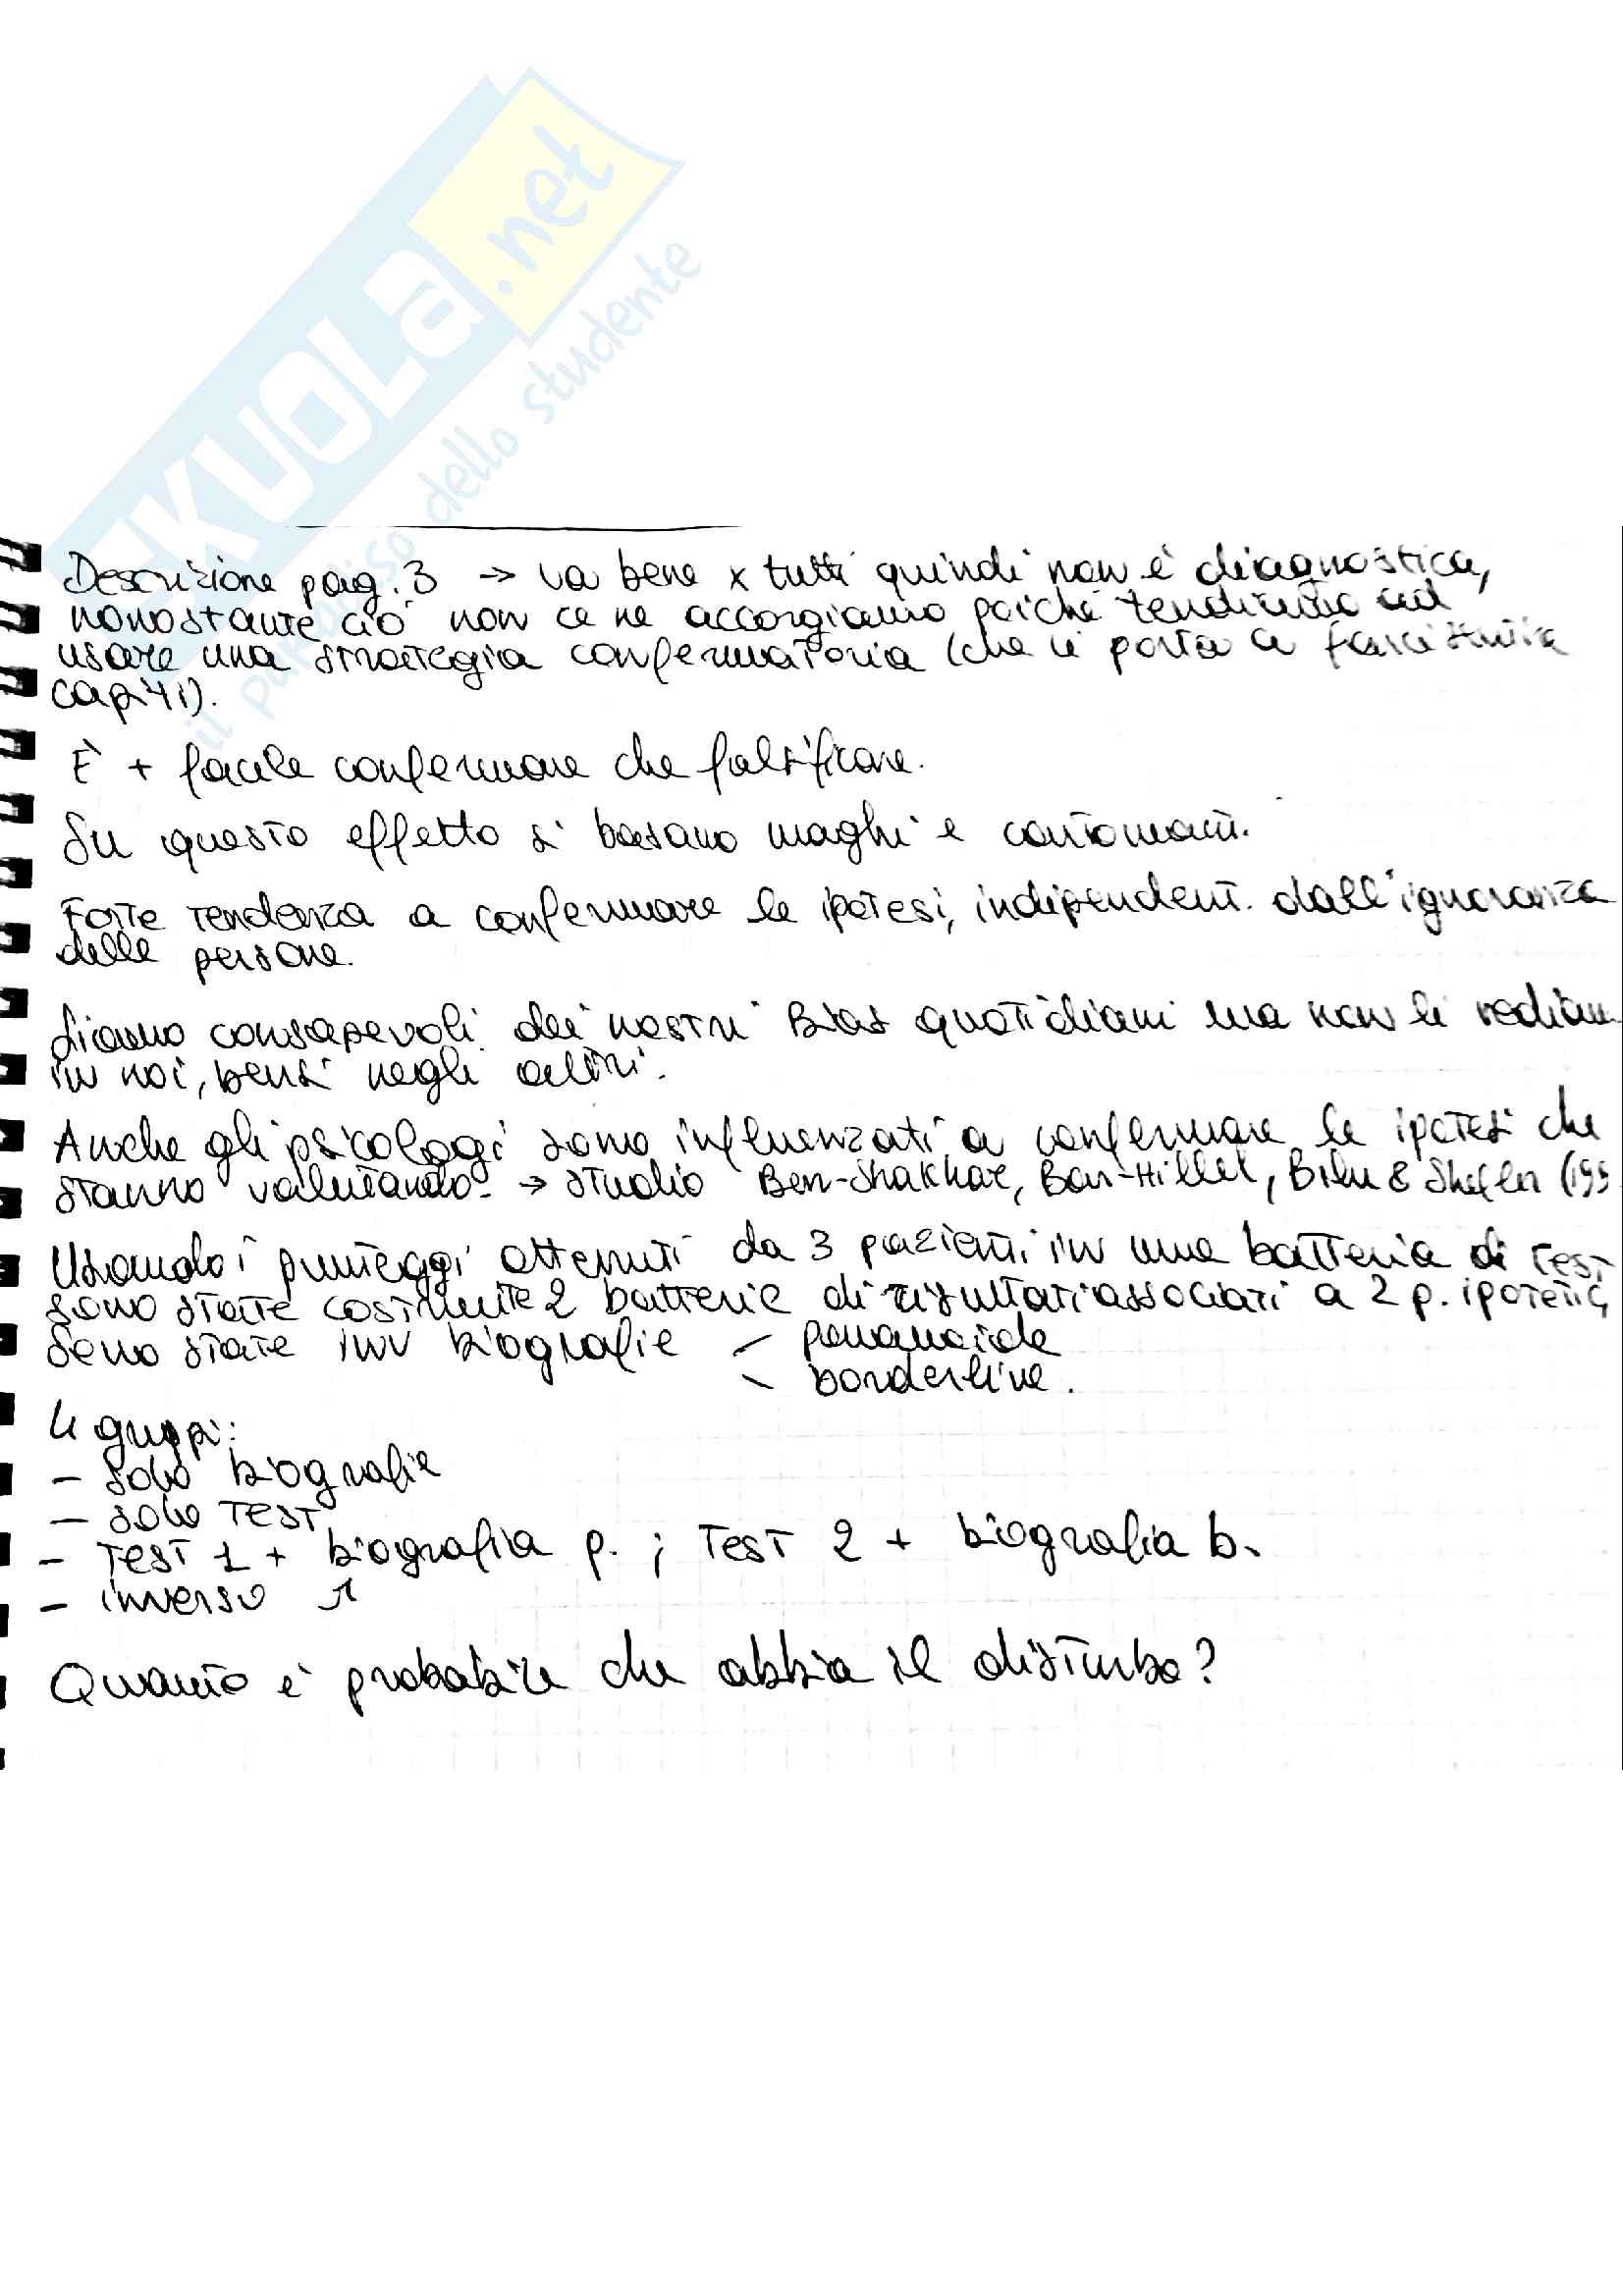 SKUOLa.net
il paradiso dello studente
Descrizione pag. 3 → va bene x tutti quindi non è diagnostica,
nonostante ciò non ce ne accorgiamo poichè tendiamo ad
usare una strategia confermatoria (che ci porta a
È + facile confermare che falsificare.
Su questo effetto si basano maghi e cartomanti.
Forte tendenza a confermare le ipotesi, indipendent. dall'ignoranza
delle persone.
Siamo consapevoli dei nostri Bias quotidiani ma non li vediamo
in noi, bensì negli altri.
Anche gli psicologi sono influenzati a confermare le ipotesi che
stanno valutando. → studio Ben-Shakhar, Bar-Hillel, Bilu & Shefler (199
Usando i punteggi ottenuti da 3 pazienti in una batteria di test
sono state costruite 2 batterie di risultati associati a 2 p. ipotetici,
Sono state inv biografie - paranoide
- borderline.
4 gruppi:
- solo biografie
- solo test
- Test 1 + biografia p. ; Test 2 + biografia b.
- inverso ↑
Quanto è probabile che abbia il disturbo?